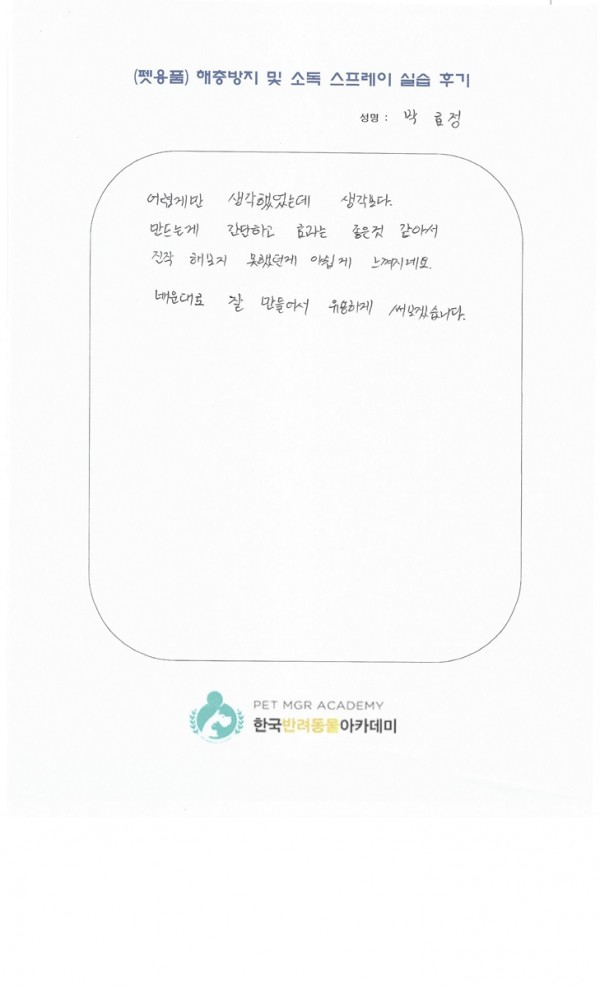 (펫용품) 해충방지 및 소독 스프레이 실습 후기
성명 : 박 효정
어렵게만 생각했었는데 생각보다.
만드는게 간단하고 효과는 좋은것 같아서
진작 해보지 못했던게 아쉽게 느껴지네요.
배운대로 잘 만들어서 유용하게 써보겠습니다.
PET MGR ACADEMY
한국반려동물아카데미